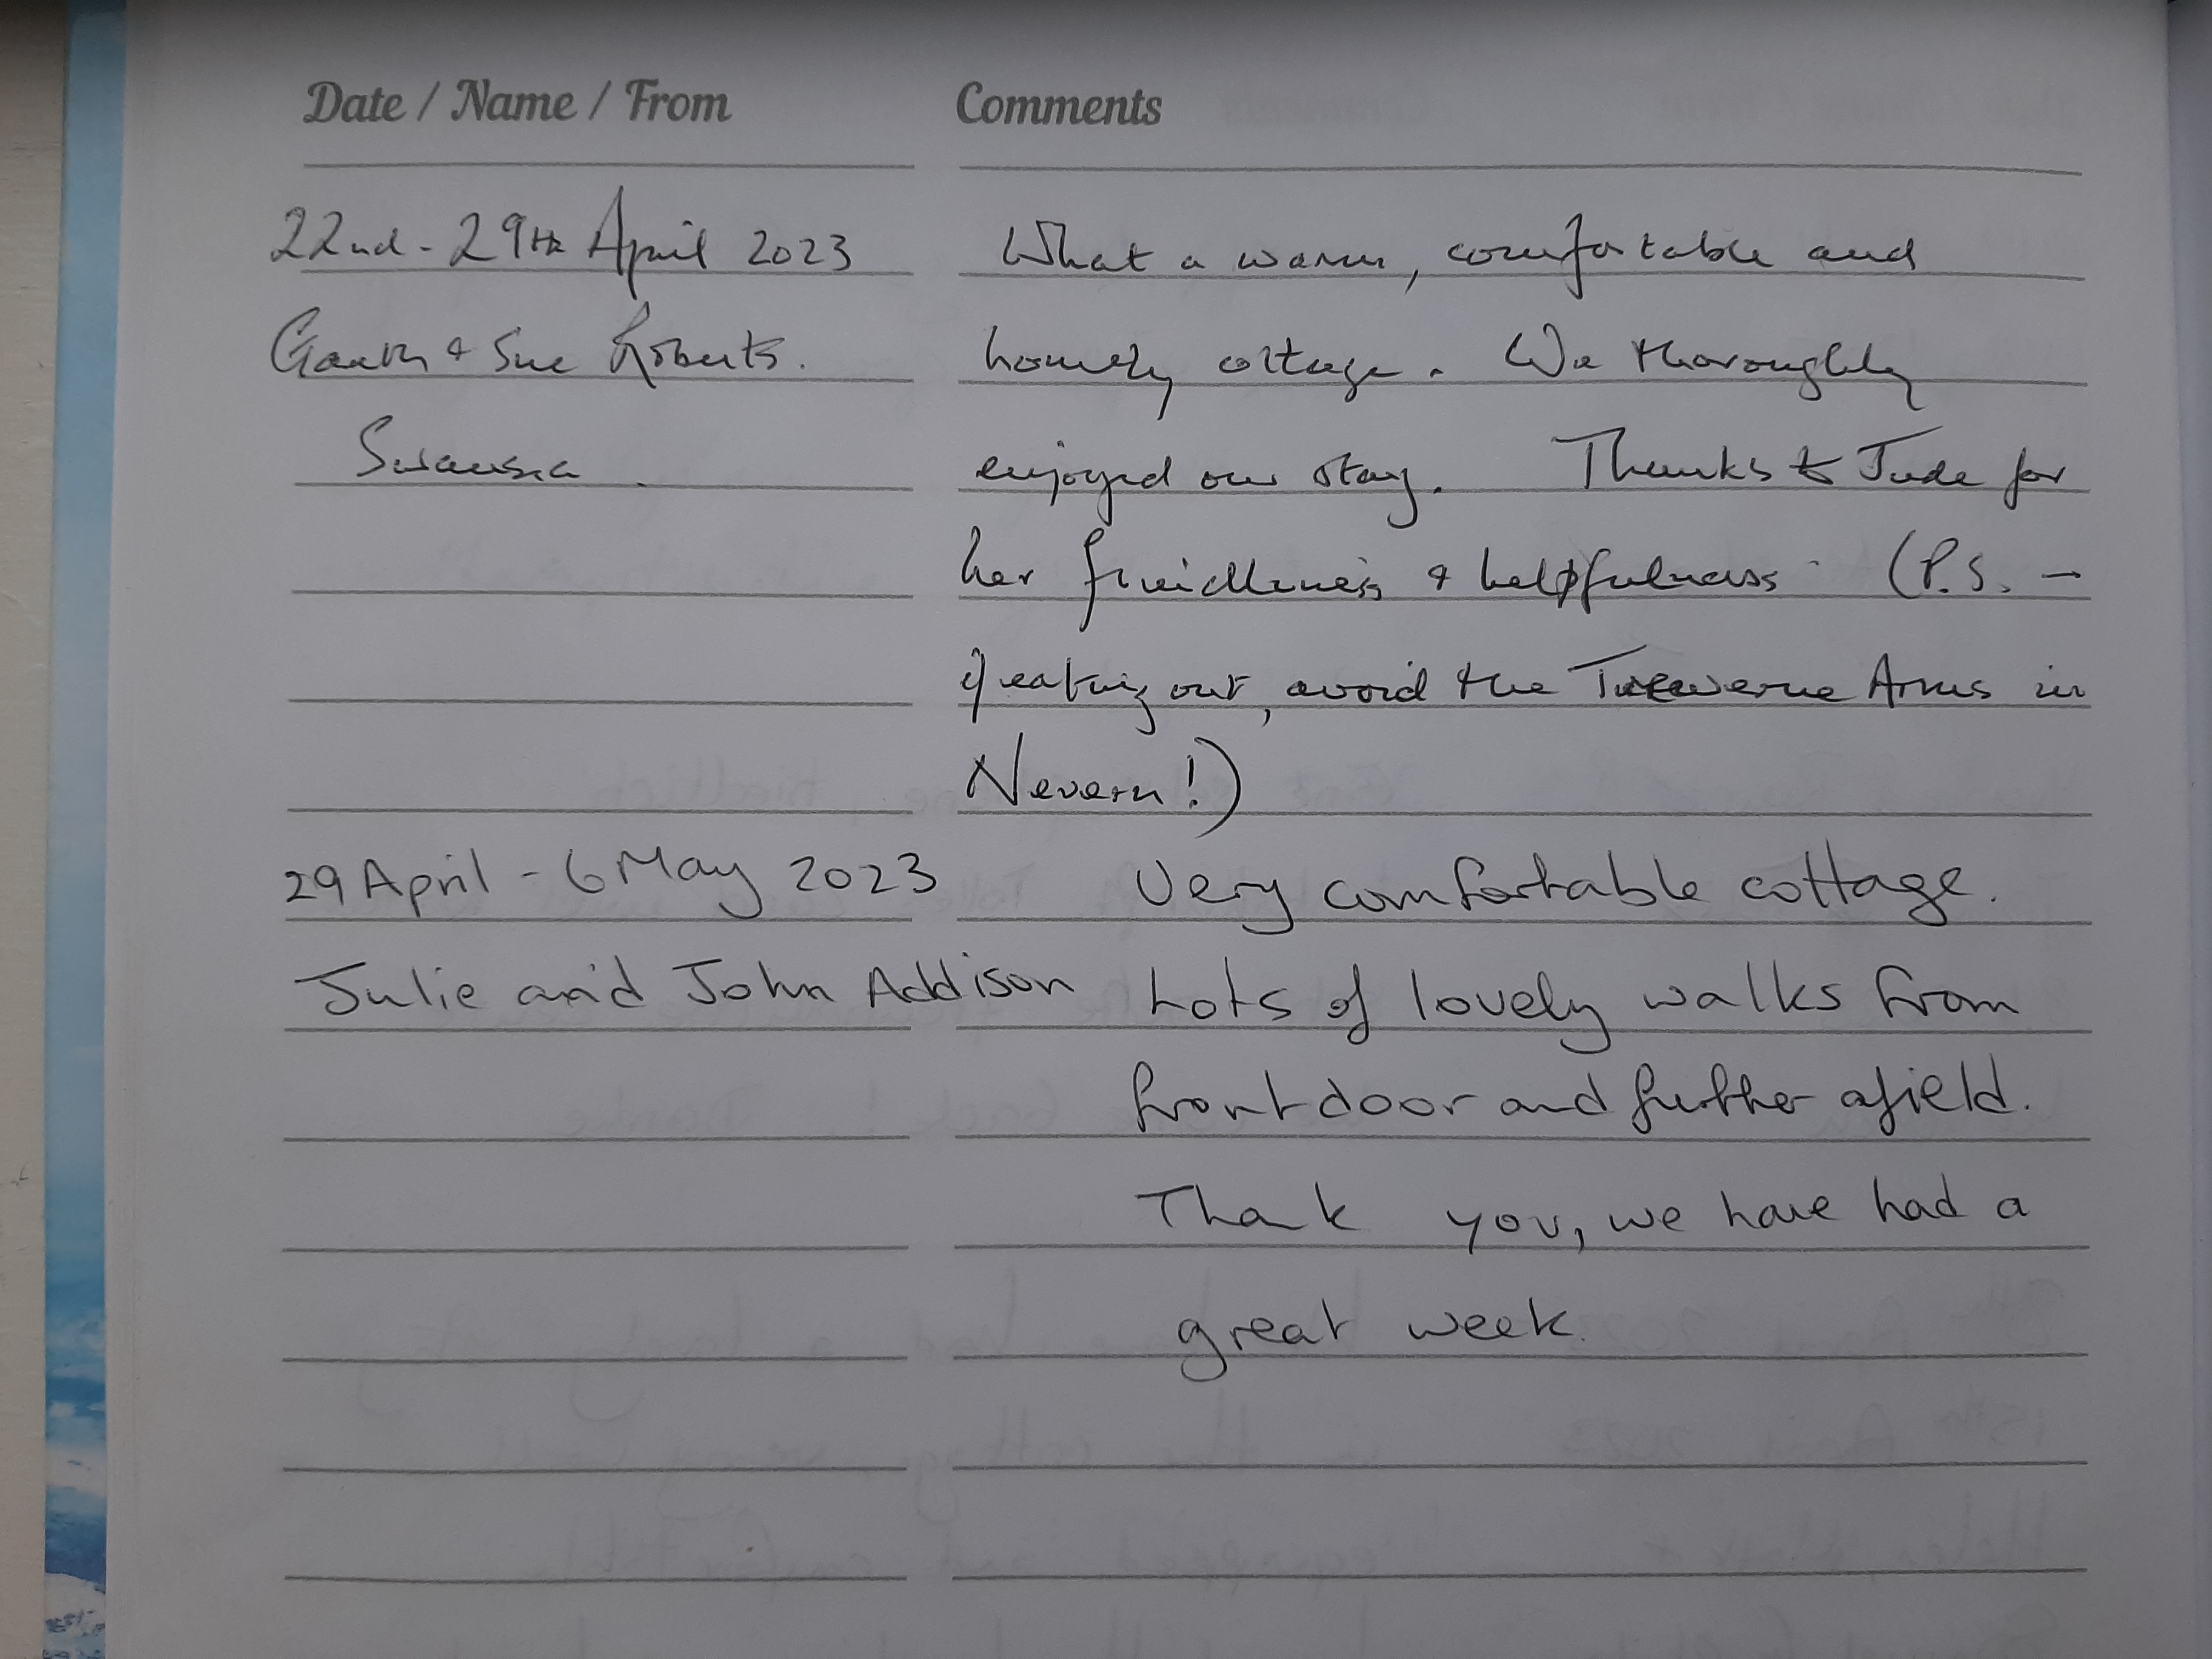 Date / Name / From Comments
22nd - 29th April 2023 What a warm, comfortable and
Gareth & Sue Roberts. homely cottage. We thoroughly
Swansea. enjoyed our stay. Thanks to Jude for
her friendliness & helpfulness. (P.S. –
if eating out, avoid the Trewerne Arms in
Nevern!)
29 April - 6 May 2023 Very comfortable cottage.
Julie and John Addison Lots of lovely walks from
front door and further afield.
Thank you, we have had a
great week.